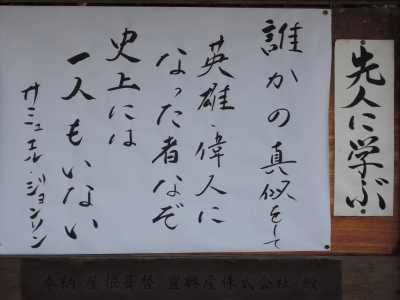 先人に学ぶ
誰かの真似をして
英雄・偉人に
なった者なぞ
史上には
一人もいない
サミュエル・ジョンソン
奉納 屋根葺替 豊興産株式会社 殿